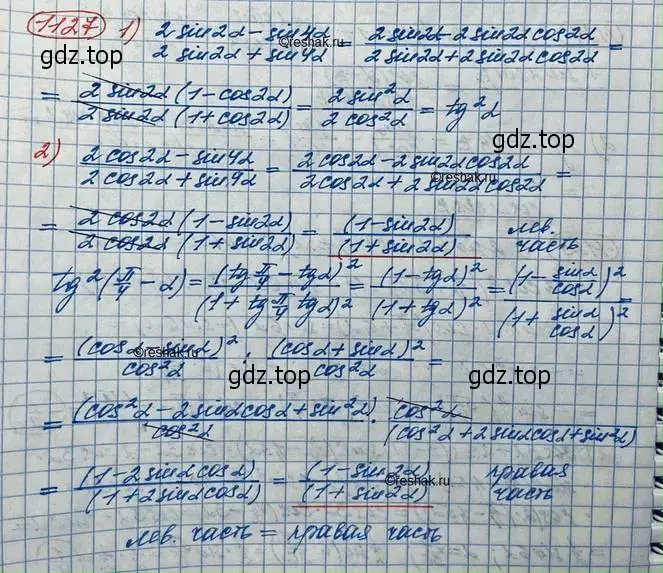 1127 1) (2 sin2α - sin4α)/(2 sin2α + sin4α) = (2 sin2α - 2 sin2α cos2α)/(2 sin2α + 2 sin2α cos2α) =
gdz.top ©reshak.ru gdz.top
= (2 sin2α (1 - cos2α))/(2 sin2α (1 + cos2α)) = (2 sin²α)/(2 cos²α) = tg²α
gdz.top
2) (2 cos2α - sin4α)/(2 cos2α + sin4α) = (2 cos2α - 2 sin2α cos2α)/(2 cos2α + 2 sin2α cos2α) =
= (2 cos2α (1 - sin2α))/(2 cos2α (1 + sin2α)) = (1 - sin2α)/(1 + sin2α) лев. часть
tg²(π/4 - α) = (tg π/4 - tgα)²/(1 + tg π/4 tgα)² = (1 - tgα)²/(1 + tgα)² = (1 - sinα/cosα)²/(1 + sinα/cosα)² =
= (cosα - sinα)²/cos²α : (cosα + sinα)²/cos²α =
©reshak.ru
gdz.top gdz.top
= (cos²α - 2 sinα cosα + sin²α)/cos²α · cos²α/(cos²α + 2 sinα cosα + sin²α)
= (1 - 2 sinα cosα)/(1 + 2 sinα cosα) = (1 - sin2α)/(1 + sin2α) правая часть
©reshak.ru
лев. часть = правая часть